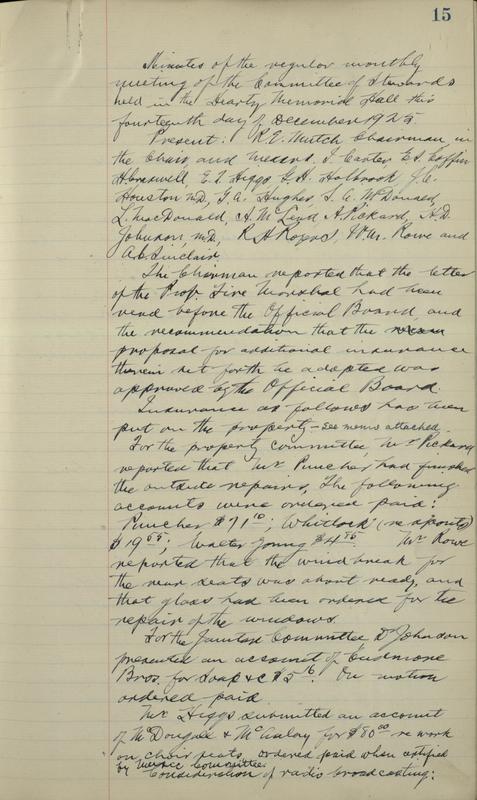 15
Minutes of the regular monthly
meeting of the Committee of Stewards
held in the Heartz Memorial Hall this
fourteenth day of December 1925
Present: R.E. Mutch Chairman, in
the Chair, and Messrs. I. Carter, E.S. Coffin
H. Creswell, E.T. Higgs, G.H. Holbrook, J.C.
Houston M.D., G.A. Hughes, J.A. McDonald,
L. MacDonald, A. McLeod, A. Pickard, A.D.
Johnson, M.D., R.H. Rogers, Wm. Rowe and
A.L. Sinclair.
The Chairman reported that the letter
of the Prov. Fire Marshal had been
read before the Official Board, and
the recommendation that the
proposal for additional insurance
therein set forth be adopted was
approved by the Official Board.
Insurance as follows has been
put on the property - see memo attached.
For the property committee, Mr Pickard
reported that Mr Puncher had finished
the outside repairs. The following
accounts were ordered paid:
Puncher $71 10; Whitlock (re spouts)
$19 65; Walter Young $4 75. Mr Rowe
reported that the windbreak for
the rear seats was about ready, and
that glass had been ordered for the
repair of the windows.
For the Janitor Committee Dr Johnson
presented an account of
Bros. for soap &c $5 16. On motion
ordered paid.
Mr Higgs submitted an account
of McDougall & McAulay for $80 00 re work
on choir seats, ordered paid when certified
by Music Committee.
Consideration of radio broadcasting: